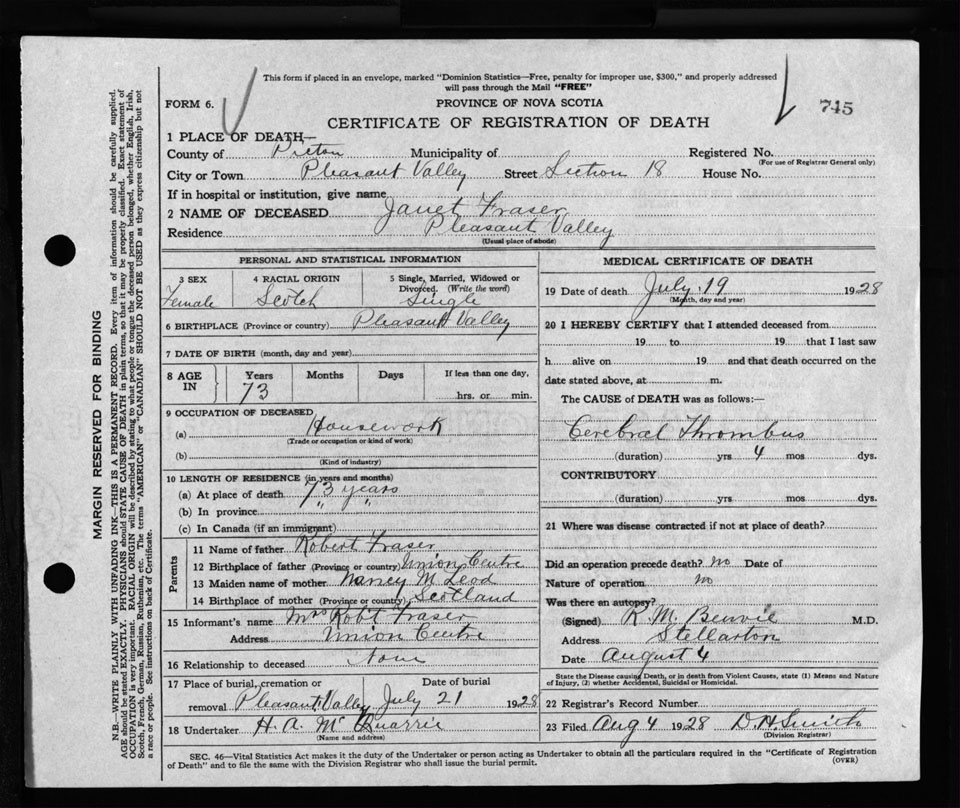 This form if placed in an envelope, marked "Dominion Statistics—Free, penalty for improper use, $300," and properly addressed
will pass through the Mail "FREE"
FORM 6.
PROVINCE OF NOVA SCOTIA
745
CERTIFICATE OF REGISTRATION OF DEATH
1 PLACE OF DEATH—
County of Pictou Municipality of Registered No.
(For use of Registrar General only)
City or Town Pleasant Valley Street Section 18 House No.
If in hospital or institution, give name
2 NAME OF DECEASED Janet Fraser
Residence Pleasant Valley
(Usual place of abode)
PERSONAL AND STATISTICAL INFORMATION
3 SEX 4 RACIAL ORIGIN 5 Single, Married, Widowed or
Divorced. (Write the word)
Female Scotch Single
6 BIRTHPLACE (Province or country) Pleasant Valley
7 DATE OF BIRTH (month, day and year)
8 AGE IN Years Months Days If less than one day,
73 hrs. or min.
9 OCCUPATION OF DECEASED
(a) Housework
(Trade or occupation or kind of work)
(b)
(Kind of industry)
10 LENGTH OF RESIDENCE (in years and months)
(a) At place of death 73 years
(b) In province " "
(c) In Canada (if an immigrant)
Parents
11 Name of father Robert Fraser
12 Birthplace of father (Province or country) Union Centre
13 Maiden name of mother Nancy McLeod
14 Birthplace of mother (Province or country) Scotland
15 Informant's name Mrs Robt Fraser
Address Union Centre
16 Relationship to deceased None
17 Place of burial, cremation or Date of burial
removal Pleasant Valley July 21 1928
18 Undertaker H. A. McQuarrie
(Name and address)
MEDICAL CERTIFICATE OF DEATH
19 Date of death July 19 1928
(Month, day and year)
20 I HEREBY CERTIFY that I attended deceased from
19 to 19 that I last saw
h alive on 19 and that death occurred on the
date stated above, at m.
The CAUSE of DEATH was as follows:—
Cerebral Thrombus
(duration) yrs 4 mos. dys.
CONTRIBUTORY
(duration) yrs. mos. dys.
21 Where was disease contracted if not at place of death?
Did an operation precede death? no Date of
Nature of operation no
Was there an autopsy?
(Signed) R. M. Benvie M.D.
Address Stellarton
Date August 4
State the Disease causing Death, or in death from Violent Causes, state (1) Means and Nature
of Injury, (2) whether Accidental, Suicidal or Homicidal.
22 Registrar's Record Number
23 Filed Aug 4 1928 D. H. Smith
(Division Registrar)
SEC. 46—Vital Statistics Act makes it the duty of the Undertaker or person acting as Undertaker to obtain all the particulars required in the "Certificate of Registration
of Death" and to file the same with the Division Registrar who shall issue the burial permit.
(OVER)
MARGIN RESERVED FOR BINDING
N.B.—WRITE PLAINLY WITH UNFADING INK—THIS IS A PERMANENT RECORD. Every item of information should be carefully supplied.
AGE should be stated EXACTLY. PHYSICIANS should STATE CAUSE OF DEATH in plain terms, so that it may be properly classified. Exact statement of
OCCUPATION is very important. RACIAL ORIGIN will be described by stating to what people or tongue the deceased person belonged, whether English, Irish,
Scotch, French, German, Russian, Ruthenian, etc. The terms "AMERICAN" or "CANADIAN" SHOULD NOT BE USED as they express citizenship but not
a race or people. See instructions on back of Certificate.